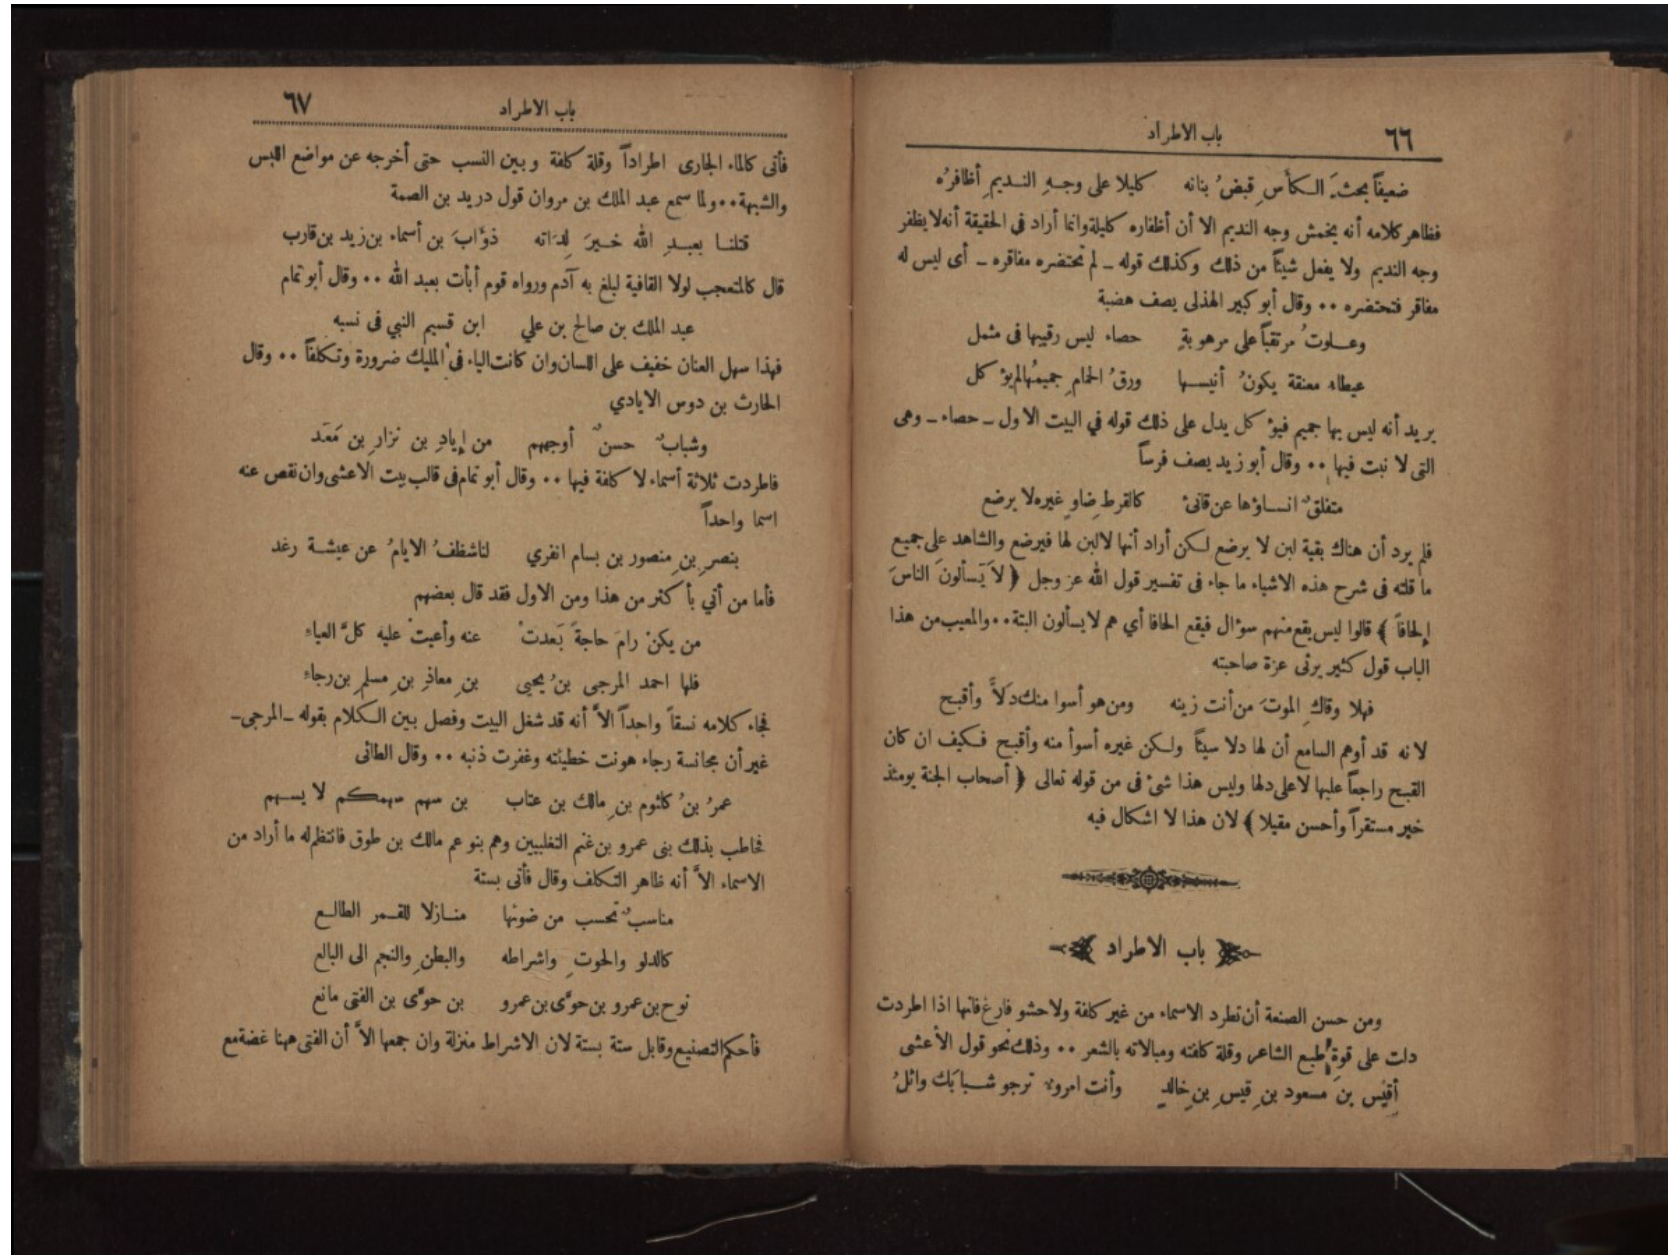 ٦٦
باب الاطراد
ضعيفاً بحث الكأس قبض بنانه كليلا على وجه النديم أظافره
فظاهر كلامه أنه يخمش وجه النديم الا أن أظفاره كليلة وانما أراد في الحقيقة أنه لا يظفر
وجه النديم ولا يفعل شيئاً من ذلك وكذلك قوله ـ لم تحتضره مفاقره ـ أى ليس له
مفاقر فتحتضره ٠٠ وقال أبو كبير الهذلى يصف هضبة
وعلوتُ مرتقباً على مرهوبةٍ حصاء ليس رقيبها فى مثمل
عيطاء معنقة يكونُ أنيسها ورقُ الحمامِ جميمُها لم يؤكل
يريد أنه ليس بها جميم فيؤكل يدل على ذلك قوله في البيت الاول ـ حصاء ـ وهى
التى لا نبت فيها ٠٠ وقال أبو زيد يصف فرساً
متفلقٌ انساؤها عن قانئ كالقرط ضاوٍ غيره لا يرضع
فلم يرد أن هناك بقية لبن لا يرضع لكن أراد أنها لا لبن لها فيرضع والشاهد على جميع
ما قلته فى شرح هذه الاشياء ما جاء فى تفسير قول الله عز وجل ﴿ لاَ يَسألونَ الناسَ
إِلحافاً ﴾ قالوا ليس يقع منهم سؤال فيقع الحافا أي هم لا يسألون البتة ٠٠ والمعيب من هذا
الباب قول كثير يرثى عزة صاحبته
فهلا وقاكِ الموتَ من أنت زينه ومن هو أسوا منك دَلاًّ وأقبح
لانه قد أوهم السامع أن لها دلا سيئاً ولكن غيره أسوأ منه وأقبح فكيف ان كان
القبح راجعاً عليها لا على دلها وليس هذا شئ فى من قوله تعالى ﴿ أصحاب الجنة يومئذ
خير مستقراً وأحسن مقيلا ﴾ لان هذا لا اشكال فيه
باب الاطراد
ومن حسن الصنعة أن تطرد الاسماء من غير كلفة ولا حشو فارغ فانها اذا اطردت
دلت على قوة طبع الشاعر وقلة كلفته ومبالاته بالشعر ٠٠ وذلك نحو قول الأعشى
أقيس بن مسعود بنِ قيسِ بنِ خالدٍ وأنت امرؤ ترجو شبابك وائلُ
٦٧
باب الاطراد
فأتى كالماء الجارى اطراداً وقلة كلفة وبين النسب حتى أخرجه عن مواضع اللبس
والشبهة ٠٠ ولما سمع عبد الملك بن مروان قول دريد بن الصمة
قتلنا بعبدِ الله خيرَ لِدَاته ذؤابَ بن أسماء بن زيد بن قارب
قال كالمتعجب لولا القافية لبلغ به آدم ورواه قوم أبأت بعبد الله ٠٠ وقال أبو تمام
عبد الملك بن صالح بن علي ابن قسيم النبي فى نسبه
فهذا سهل العنان خفيف على اللسان وان كانت الياء في المليك ضرورة وتكلفاً ٠٠ وقال
الحارث بن دوس الايادي
وشبابٌ حسنٌ أوجههم من إِيادِ بن نزارِ بن مَعَد
فاطردت ثلاثة أسماء لا كلفة فيها ٠٠ وقال أبو تمام فى قالب بيت الاعشى وان نقص عنه
اسما واحداً
بنصرِ بنِ منصور بن بسام انفري لنا شظفُ الايامُ عن عيشة رغد
فأما من أتي بأكثر من هذا ومن الاول فقد قال بعضهم
من يكنْ رامَ حاجةً بَعدتْ عنه وأعيتْ عليه كلَّ العياءِ
فلها احمد المرجى بنُ يحيى بنِ معاذِ بنِ مسلمِ بن رجاءِ
فجاء كلامه نسقاً واحداً الاَّ أنه قد شغل البيت وفصل بين الكلام بقوله ـ المرجى ـ
غير أن مجانسة رجاء هونت خطيئته وغفرت ذنبه ٠٠ وقال الطائى
عمرُ بنُ كلثوم بنِ مالك بن عتاب بن سهم سهمكم لا يسهم
فخاطب بذلك بنى عمرو بن غنم التغلبيين وهم بنو عم مالك بن طوق فانتظم له ما أراد من
الاسماء الاَّ أنه ظاهر التكلف وقال فأتى بستة
مناسبٌ تحسب من ضوئها منازلا للقمر الطالع
كالدلو والحوتِ واشراطه والبطنِ والنجم الى البالع
نوح بن عمرو بن حوّى بن عمرو بن حوّى بن الفتى مانع
فأحكم التصنيع وقابل ستة بستة لان الاشراط منزلة وان جمعها الاَّ أن الفتى ههنا غضة مع